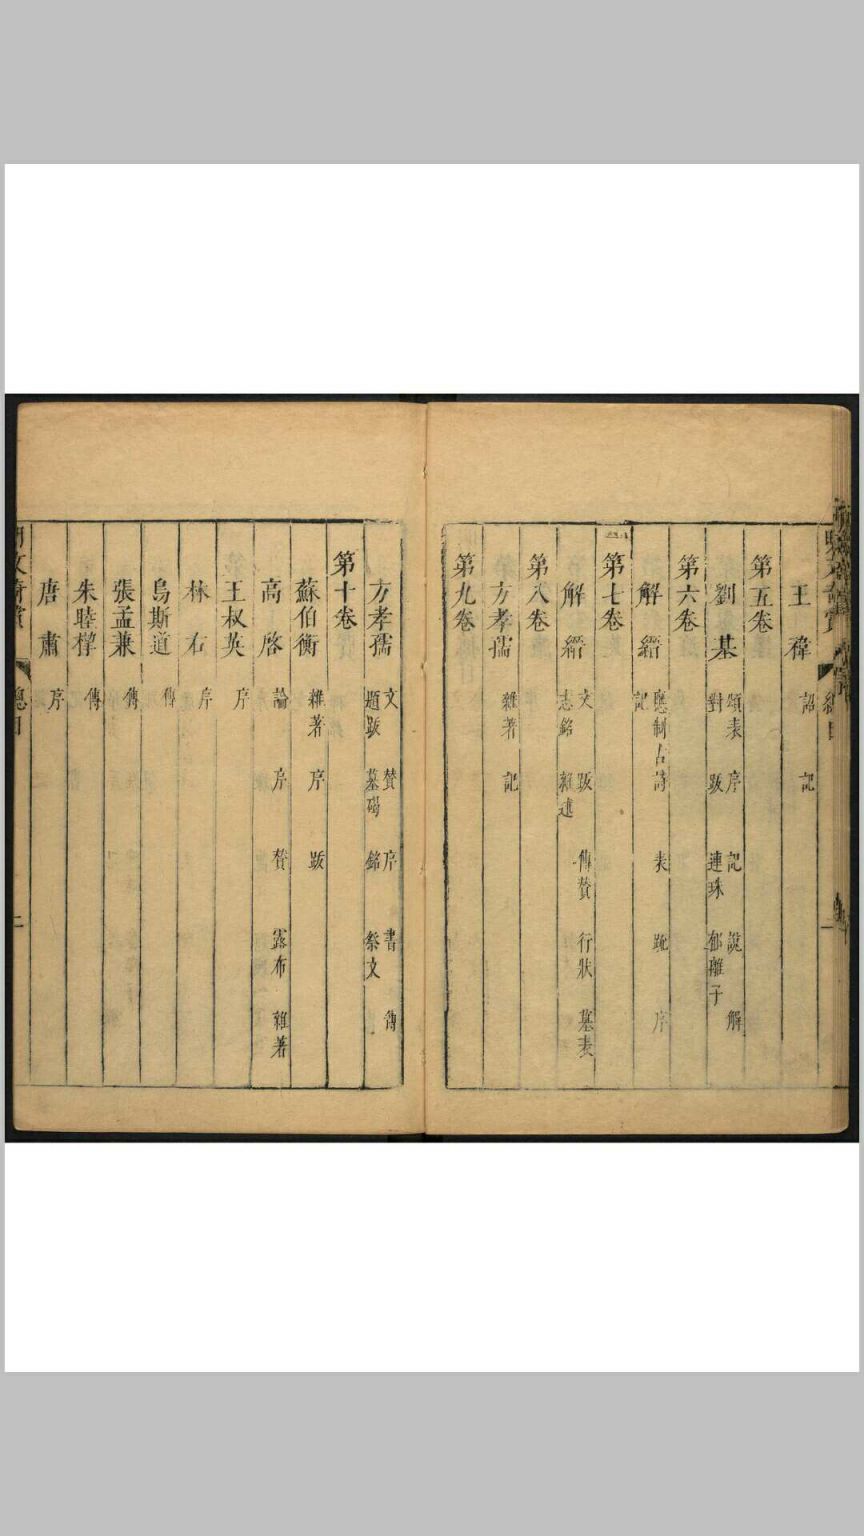 王禕 詔 記
第五卷
劉基 頌 表 序 記 說 解
對 跋 連珠 郁離子
第六卷
解縉 應制古詩 表 疏 序
記
第七卷
解縉 文 跋 傳贊 行狀 墓表
志銘 雜述
第八卷
方孝孺 雜著 記
第九卷
方孝孺 文 贊 序 書 傳
題跋 墓碣 銘 祭文
第十卷
蘇伯衡 雜著 序 跋
高啓 論 序 贊 露布 雜著
王叔英 序
林右 序
烏斯道 傳
張孟兼 傳
朱睦㮮 傳
唐肅 序
總目